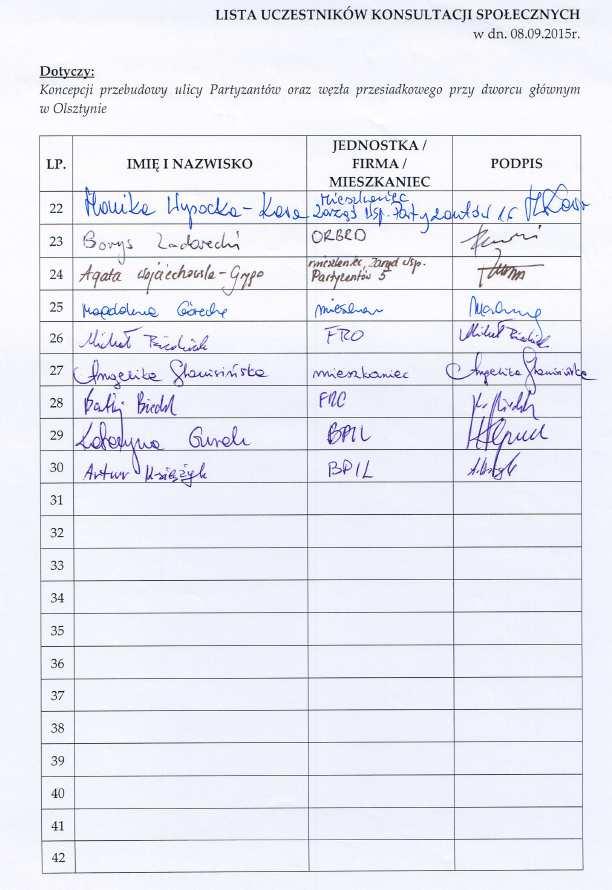 LISTA UCZESTNIKÓW KONSULTACJI SPOŁECZNYCH
w dn. 08.09.2015r.
Dotyczy:
Koncepcji przebudowy ulicy Partyzantów oraz węzła przesiadkowego przy dworcu głównym
w Olsztynie
LP. IMIĘ I NAZWISKO JEDNOSTKA / FIRMA / MIESZKANIEC PODPIS
22 Monika Wysocka-Kasa Mieszkaniec Zarząd Wsp. Partyzantów
23 Borys ORBRD
24 Agata Wojciechowska- mieszkaniec, Zarząd Wsp. Partyzantów 5
25 Magdalena
26 Michał FRO Michał
27 Angelika mieszkaniec Angelika
28
29 Katarzyna BPIL
30 Artur Książyk BPIL
31
32
33
34
35
36
37
38
39
40
41
42